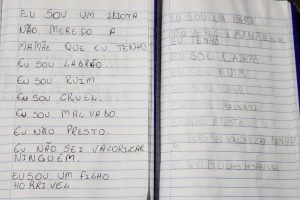 EU SOU UM IDIOTA
NÃO MEREÇO A
MAMÃE QUE EU TENHO
EU SOU LADRÃO...
EU SOU RUIM.
EU SOU CRUEL.
EU SOU MALVADO
EU NÃO PRESTO.
EU NÃO SEI VALORIZAR
NINGUÉM.
EU SOU UM FILHO
HORRIVEL.
EU SOU UM IDIOTA
NÃO MEREÇO A MAMÃE QUE
EU TENHO
EU SOU LADRÃO
EU SOU RUIM
EU SOU CRUEL
EU SOU MALVADO
EU NÃO PRESTO
EU NÃO SEI VALORIZAR NINGUEM
EU SOU FILHO HORRIVEL